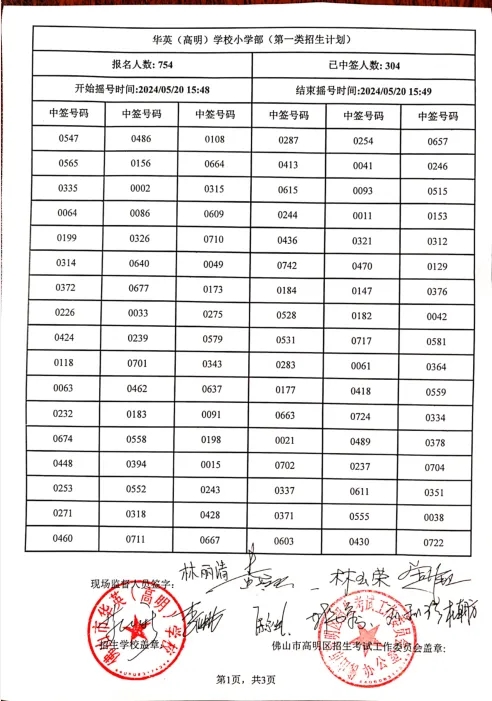 华英（高明）学校小学部（第一类招生计划）
报名人数: 754 已中签人数: 304
开始摇号时间:2024/05/20 15:48 结束摇号时间:2024/05/20 15:49
中签号码 中签号码 中签号码 中签号码 中签号码 中签号码
0547 0486 0108 0287 0254 0657
0565 0156 0664 0413 0041 0246
0335 0002 0315 0615 0093 0515
0064 0086 0609 0244 0011 0153
0199 0326 0710 0436 0321 0312
0314 0640 0049 0742 0470 0129
0372 0677 0173 0184 0147 0376
0226 0033 0275 0528 0182 0042
0424 0239 0579 0531 0717 0581
0118 0701 0343 0283 0061 0364
0063 0462 0637 0177 0418 0559
0232 0183 0091 0663 0724 0334
0674 0558 0198 0021 0489 0378
0448 0394 0015 0702 0237 0704
0253 0552 0243 0337 0611 0351
0271 0318 0428 0371 0555 0038
0460 0711 0667 0603 0430 0722
现场监督人员签字: 林丽清 林玉荣
佛山市华英（高明）学校
招生学校盖章:
佛山市高明区招生考试工作委员会盖章:
第1页，共3页